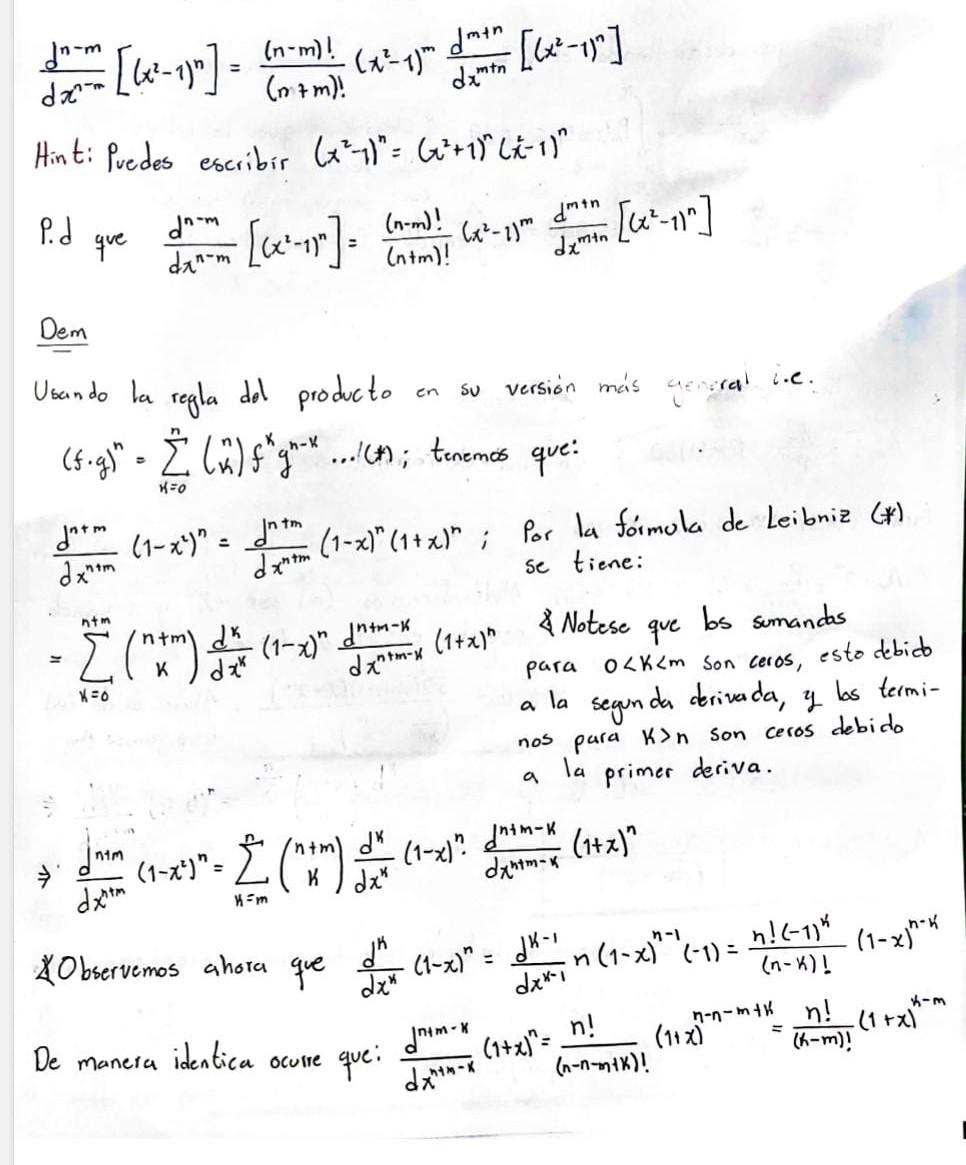 d^{n-m}/dx^{n-m} [(x²-1)ⁿ] = (n-m)!/(n+m)! (x²-1)^m d^{m+n}/dx^{m+n} [(x²-1)ⁿ]
Hint: Puedes escribir (x²-1)ⁿ = (x²+1)ⁿ (x²-1)ⁿ
P.d que d^{n-m}/dx^{n-m} [(x²-1)ⁿ] = (n-m)!/(n+m)! (x²-1)^m d^{m+n}/dx^{m+n} [(x²-1)ⁿ]
Dem
Usando la regla del producto en su versión más general i.e.
(f·g)ⁿ = Σ_{K=0}^{n} (n K) f^K g^{n-K} ...(*); tenemos que:
d^{n+m}/dx^{n+m} (1-x²)ⁿ = d^{n+m}/dx^{n+m} (1-x)ⁿ (1+x)ⁿ ; Por la fórmula de Leibniz (*)
se tiene:
= Σ_{K=0}^{n+m} (n+m K) d^K/dx^K (1-x)ⁿ d^{n+m-K}/dx^{n+m-K} (1+x)ⁿ
Notese que los sumandos
para 0<K<m son ceros, esto debido
a la segunda derivada, y los termi-
nos para K>n son ceros debido
a la primer deriva.
⇒ d^{n+m}/dx^{n+m} (1-x²)ⁿ = Σ_{K=m}^{n} (n+m K) d^K/dx^K (1-x)ⁿ · d^{n+m-K}/dx^{n+m-K} (1+x)ⁿ
Observemos ahora que d^K/dx^K (1-x)ⁿ = d^{K-1}/dx^{K-1} n(1-x)^{n-1} (-1) = n!(-1)^K/(n-K)! (1-x)^{n-K}
De manera identica ocurre que: d^{n+m-K}/dx^{n+m-K} (1+x)ⁿ = n!/(n-n-m+K)! (1+x)^{n-n-m+K} = n!/(K-m)! (1+x)^{K-m}